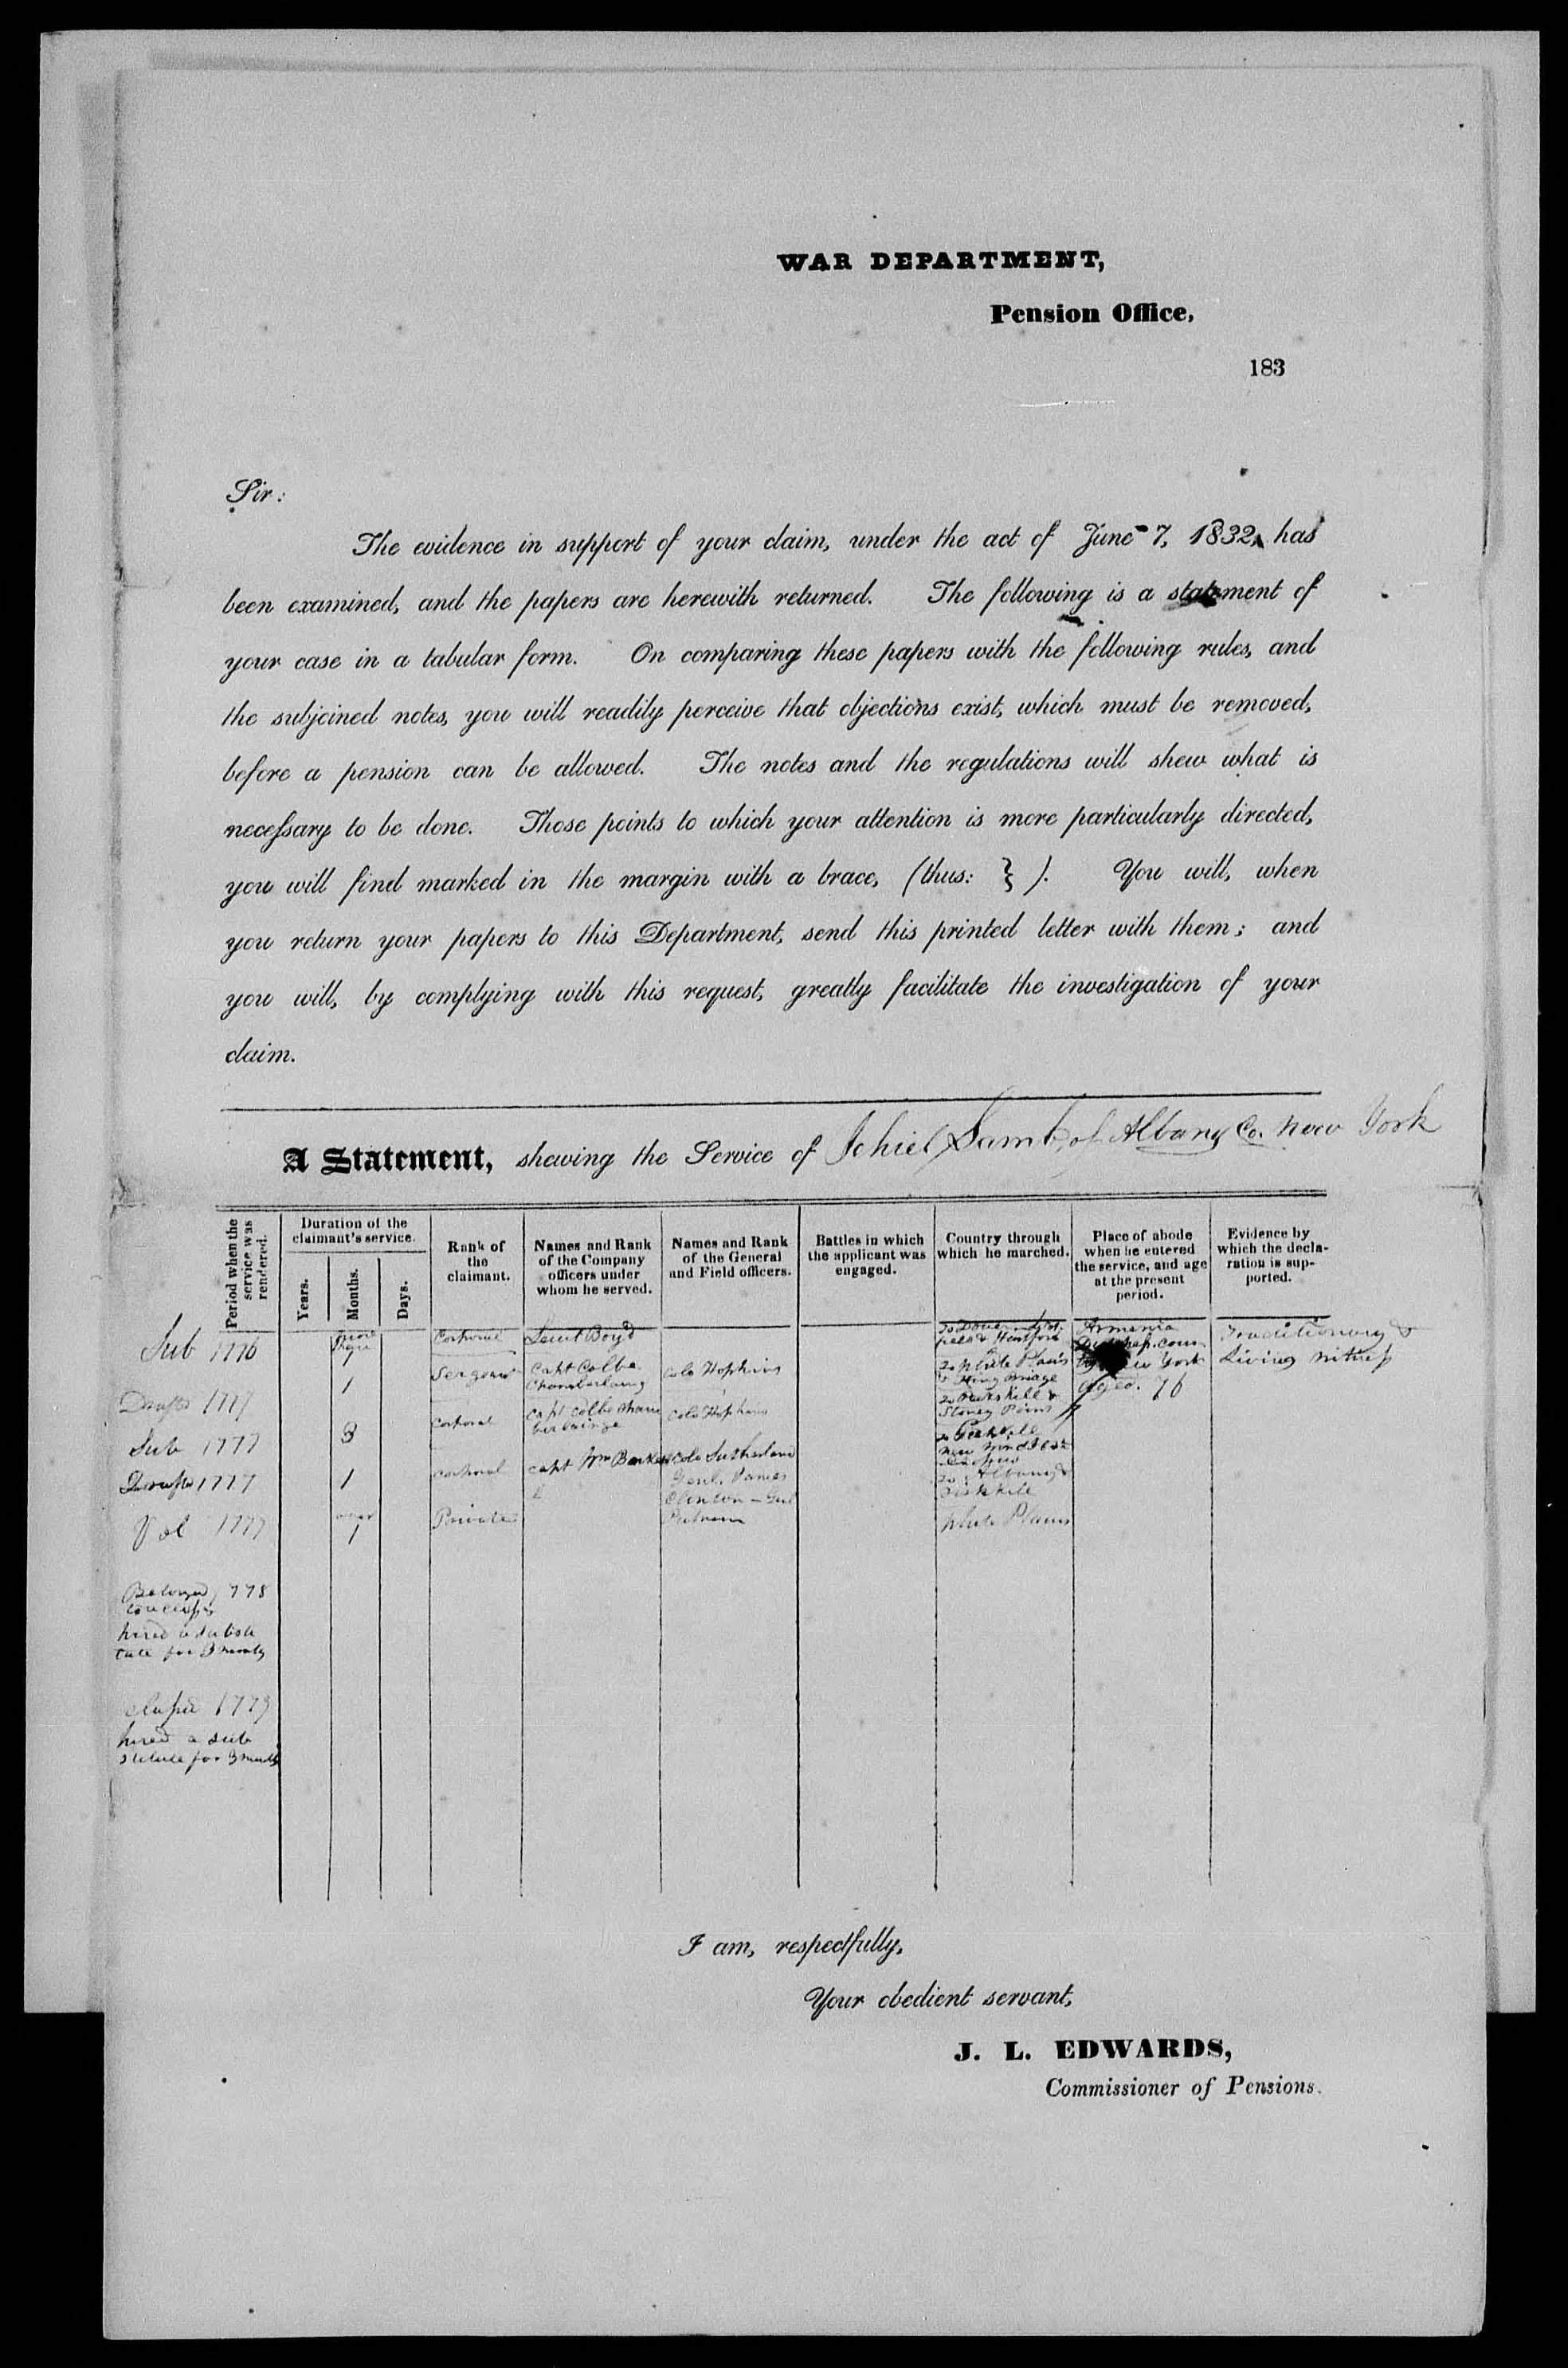 WAR DEPARTMENT,
Pension Office,
183
Sir:
The evidence in support of your claim, under the act of June 7, 1832, has
been examined, and the papers are herewith returned. The following is a statement of
your case in a tabular form. On comparing these papers with the following rules, and
the subjoined notes, you will readily perceive that objections exist, which must be removed,
before a pension can be allowed. The notes and the regulations will shew what is
necessary to be done. Those points to which your attention is more particularly directed,
you will find marked in the margin with a brace, (thus: } ). You will, when
you return your papers to this Department, send this printed letter with them; and
you will, by complying with this request, greatly facilitate the investigation of your
claim.
A Statement, shewing the Service of Jehiel Lamb, of Albany Co. New York
Period when the service was rendered.
Duration of the claimant's service.
Years.
Months.
Days.
Rank of the claimant.
Names and Rank of the Company officers under whom he served.
Names and Rank of the General and Field officers.
Battles in which the applicant was engaged.
Country through which he marched.
Place of abode when he entered the service, and age at the present period.
Evidence by which the declaration is supported.
Sub 1776
more than 1
Corporal
Leiut Boyd
Armenia
Traditionary &
Living witness
New York
aged. 76
Drafted 1777
1
Sergeant
Capt Colbe Chamberlaing
Colo Hopkins
to White Plains & Kings Bridge
Sub 1777
3
Corporal
Capt Colbe Cham
Colo Hopkins
to Peekskill & Stoney Point
Drafted 1777
1
corporal
capt Wm Barker
Colo Sutherland
Genl. James
Clinton - Genl
Putnam
to Albany &
Vol 1777
over 1
Private
White Plains
Belonged 1778
to a class &
hired a substi
tute for 3 months
classed 1779
hired a sub
stitute for 3 months
I am, respectfully,
Your obedient servant,
J. L. EDWARDS,
Commissioner of Pensions.